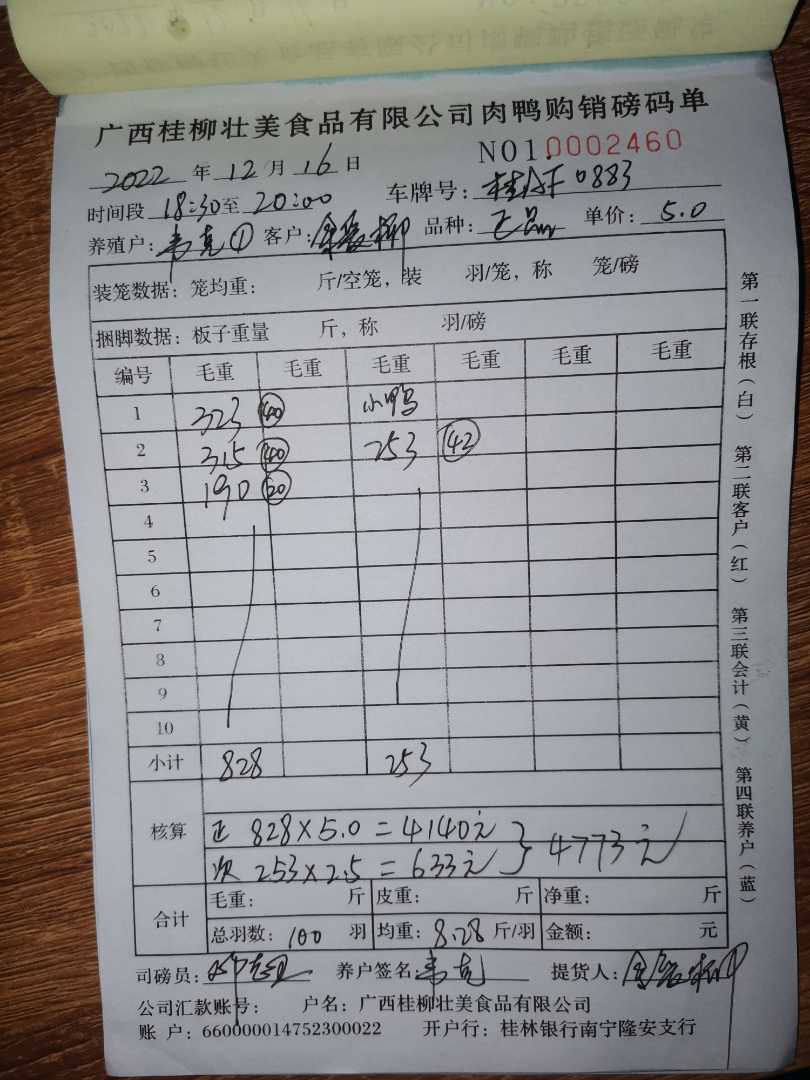 广西桂柳壮美食品有限公司肉鸭购销磅码单
NO1 0002460
2022 年 12 月 16 日
车牌号: 0883
时间段 18:30 至 20:00
养殖户: 韦克① 客户: 品种: 正品 单价: 5.0
装笼数据: 笼均重: 斤/空笼, 装 羽/笼, 称 笼/磅
捆脚数据: 板子重量 斤, 称 羽/磅
编号 毛重 毛重 毛重 毛重 毛重 毛重
1 323 40 小鸭
2 315 40 253 42
3 190 20
4
5
6
7
8
9
10
小计 828 253
核算
正 828×5.0=4140元
次 253×2.5=633元 } 4773元
合计
毛重: 斤 皮重: 斤 净重: 斤
总羽数: 100 羽 均重: 8.28 斤/羽 金额: 元
司磅员: 养户签名: 韦克 提货人:
公司汇款账号: 户名: 广西桂柳壮美食品有限公司
账 户: 660000014752300022 开户行: 桂林银行南宁隆安支行
第一联存根(白) 第二联客户(红) 第三联会计(黄) 第四联养户(蓝)